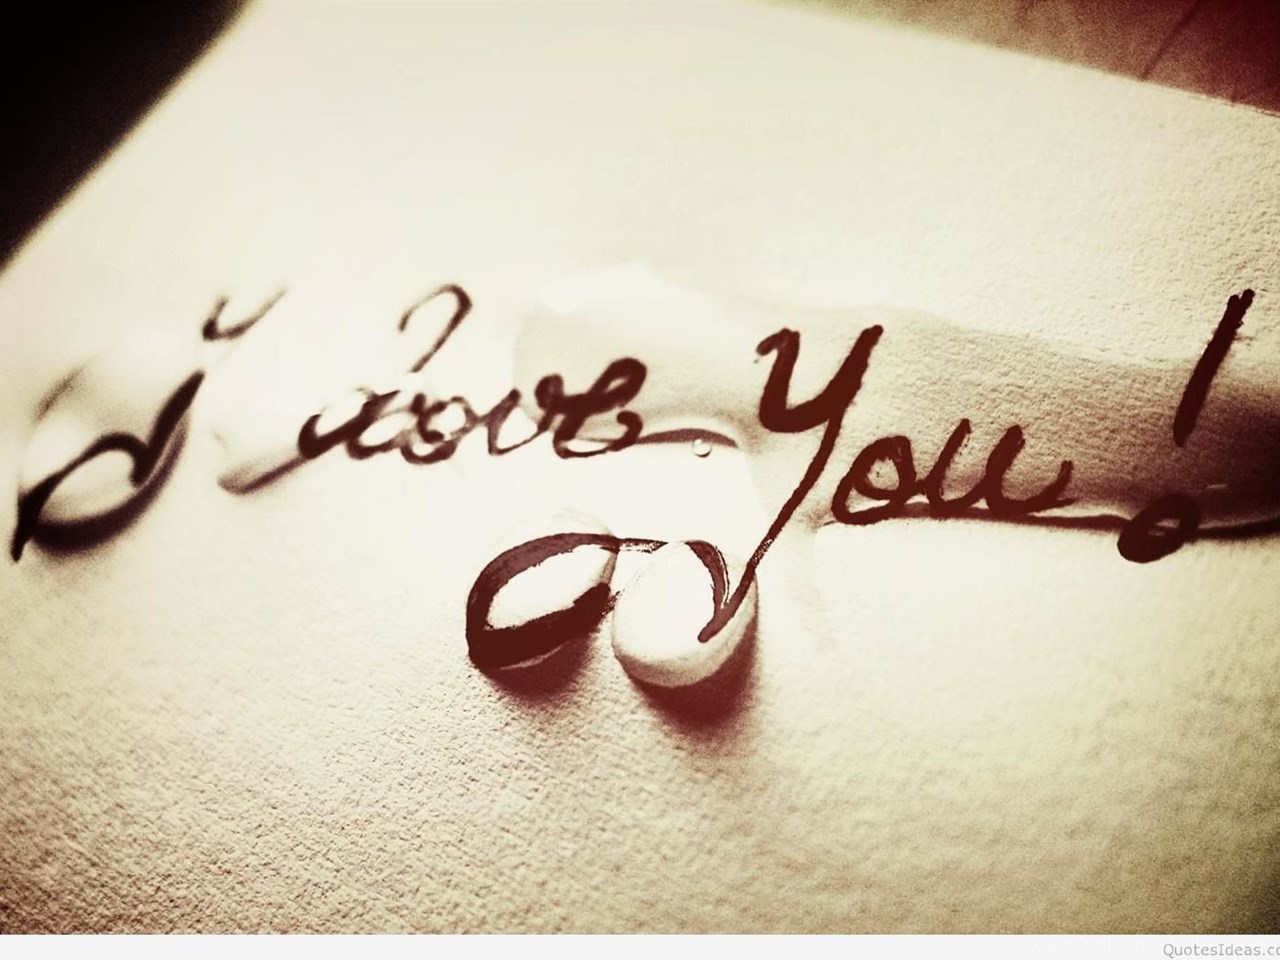 I love you!
QuotesIdeas.co